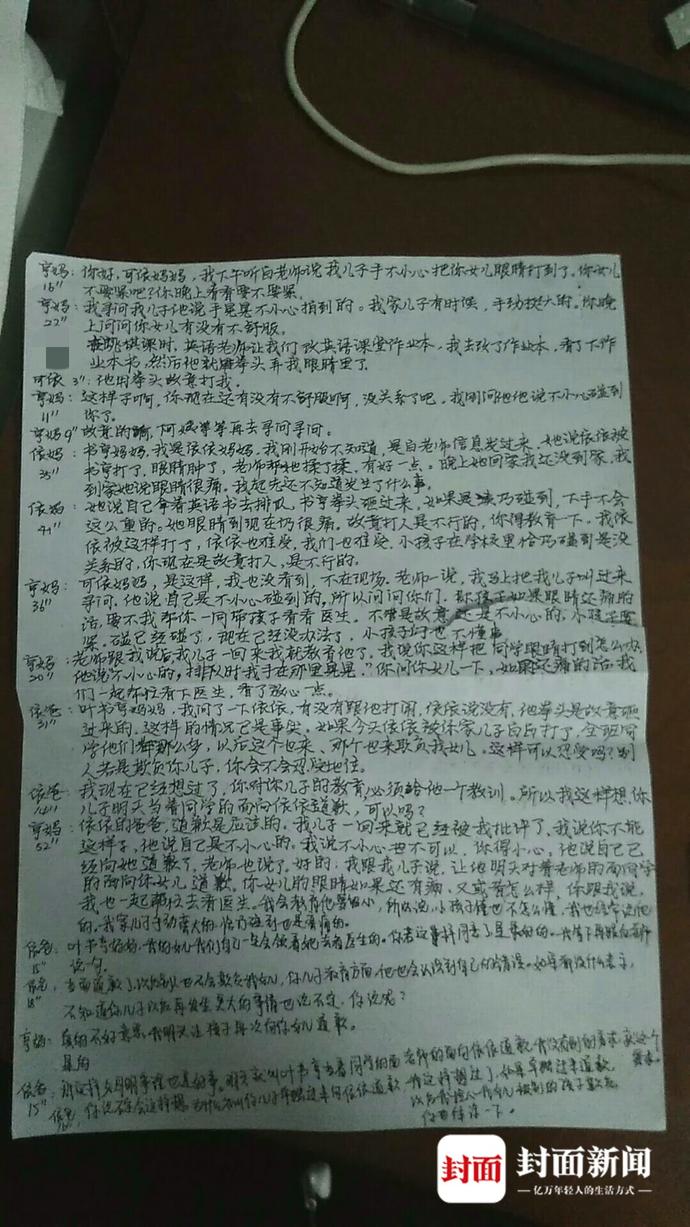 亨妈：你好，可依妈妈，我下午听白老师说我儿子手不小心把你女儿眼睛打到了。你女儿
16" 不要紧吧？你晚上看看要不要紧。
亨妈：我寻问我儿子他说手晃晃不小心捎到的。我家儿子有时候，手劲挺大的。你晚
22" 上问问你女儿有没有不舒服。
跳棋课时，英语老师让我们改英语课堂作业本，我去改了作业本，看了下作
业本书，然后他就用拳头弄我眼睛里了
可依3"：他用拳头故意打我。
亨妈：这样子啊，你现在还有没有不舒服啊，没关系了吧。我刚问他他说不小心碰到
11" 你了。
亨妈9" 故意的啊，阿姨等等再去寻问寻问。
依妈：书亨妈妈，我是依依妈妈，我刚开始不知道，是白老师信息发过来，她说依依被
35" 书亨打了，眼睛肿了，老师帮她揉了揉，有好一点。晚上她回家我还没到家，我
到家她说眼睛很痛，我起先还不知道发生了什么事。
依妈：她说自己拿着英语书去排队，书亨拳头砸过来，如果是碰巧碰到，下手不会
41" 这么重的。她眼睛到现在仍很痛。故意打人是不行的，你得教育一下。我依
依被这样打了，依依也难受，我们也难受。小孩子在学校里恰巧碰到是没
关系的，你现在是故意打人，是不行的。
亨妈：可依妈妈，是这样，我也没看到，不在现场。老师一说，我马上把我儿子叫过来
36" 寻问。他说自己是不小心碰到的，所以问问你们。你孩子如果眼睛还痛的
话，要不我帮你一同带孩子看看医生。不管是故意还是不小心的，小孩子要
紧。碰已经碰了，现在已经没办法了，小孩子们也不懂事
亨妈：老师跟我说后我儿子一回来我就教育他了。我说你这样把同学眼睛打到怎么办
20" 他说不小心的，排队时我手在那里晃晃。”你问你女儿一下，如果还痛的话，我
们一起带她看下医生，看了放心一点。
依爸：叶书亨妈妈，我问了一下依依，有没有跟他打闹，依依说没有，他拳头是故意砸
31" 过来的。这样的情况已是事实。如果今天依依被你家儿子白白打了，全班同
学他们都那么多，以后这个也来，那个也来欺负我女儿。这样可以忍受吗？别
人若是欺负你儿子，你会不会忍受地住。
依爸：我现在已经想过了，你对你儿子的教育必须给他一个教训。所以我这样想，你
14" 儿子明天当着同学的面向依依道歉，可以吗？
亨妈：依依的爸爸，道歉是应该的。我儿子一回来就已经被我批评了，我说你不能
52" 这样子，他说自己是不小心的。我说不小心也不可以，你得小心，他说自己已
经向她道歉了，老师也说了。好的，我跟我儿子说，让他明天对着老师的面同学
的面向你女儿道歉。你女儿的眼睛如果还有痛，又或者怎么样，你跟我说，
我也一起带她去看医生。我会教育他，所以说，小孩子懂也不怎么懂，我也经常说他
的。我家儿子手劲蛮大的，恰巧碰到也是蛮痛的。
依爸：叶书亨妈妈，我的女儿我们自己一定会领着她去看医生的。
15" 说一句。
依爸：当面道歉了，以后别人也不会欺负我女儿，你儿子和有方面，他也会认识到自己的错误。
18" 不知道你儿子以后再发生更大的事情也说不定，你说呢？
亨妈：真的不好意思，我明天让孩子再次向你女儿道歉。
是的
依爸：
15"
依爸，
你也体谅一下。
封面 封面新闻
亿万年轻人的生活方式